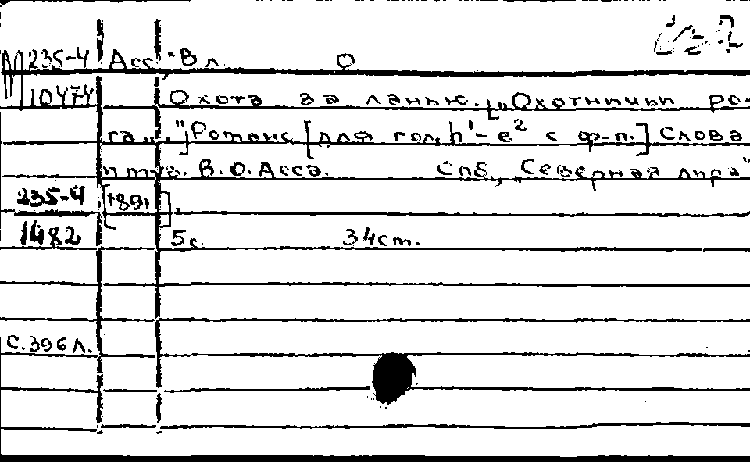 М 235-4 Асс, Вл. О
10474 Охота за ланью. ["Охотничьи ро-
га..."] Романс [для гол. h¹-e² с ф-п.] Слова
и муз. В.О. Асса. Спб., "Северная лира"
235-4 [1891].
1482 5с. 34cm.
С.396л.